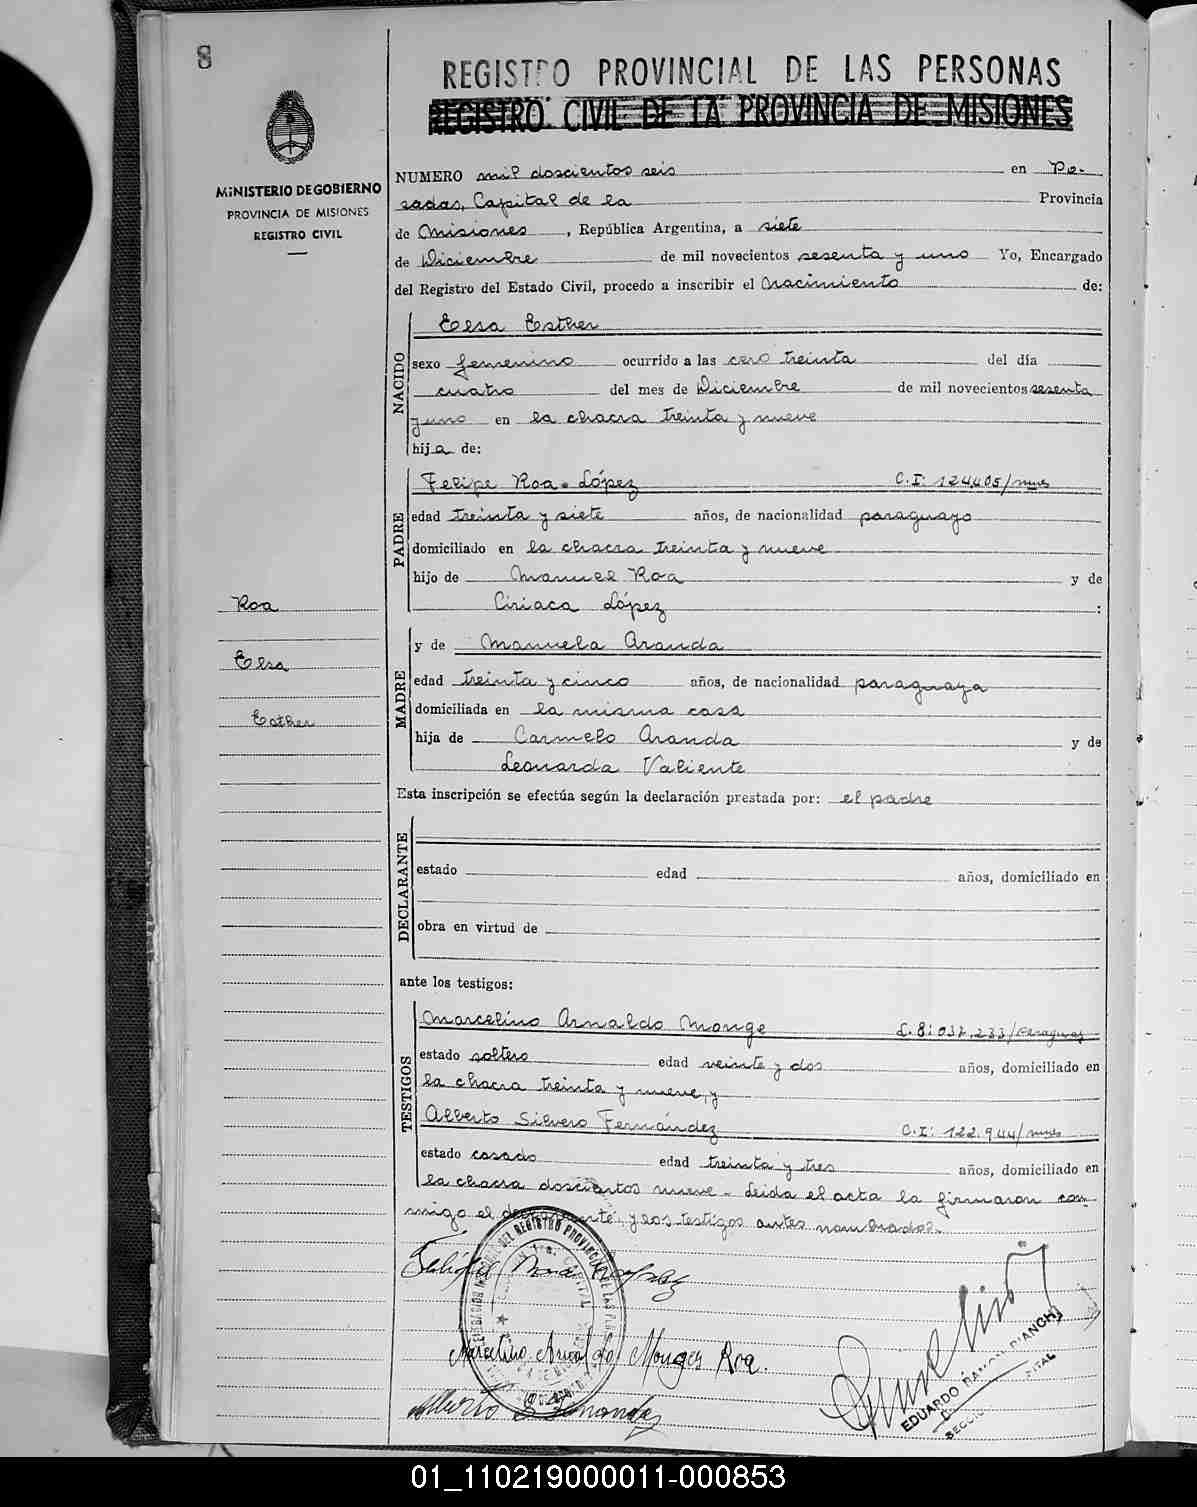 8
MINISTERIO DE GOBIERNO
PROVINCIA DE MISIONES
REGISTRO CIVIL
Roa
Elsa
Esther
REGISTRO PROVINCIAL DE LAS PERSONAS
REGISTRO CIVIL DE LA PROVINCIA DE MISIONES
NUMERO mil doscientos seis en Po-
sadas, Capital de la Provincia
de Misiones, República Argentina, a siete
de Diciembre de mil novecientos sesenta y uno Yo, Encargado
del Registro del Estado Civil, procedo a inscribir el Nacimiento de:
NACIDO
Elsa Esther
sexo femenino ocurrido a las cero treinta del día
cuatro del mes de Diciembre de mil novecientos sesenta
y uno en la chacra treinta y nueve
hija de:
PADRE
Felipe Roa López C.I: 124405/mnes
edad treinta y siete años, de nacionalidad paraguayo
domiciliado en la chacra treinta y nueve
hijo de Manuel Roa y de
Ciriaca López :
MADRE
y de Manuela Aranda
edad treinta y cinco años, de nacionalidad paraguaya
domiciliada en la misma casa
hija de Carmelo Aranda y de
Leonarda Valiente
Esta inscripción se efectúa según la declaración prestada por: el padre
DECLARANTE
estado edad años, domiciliado en
obra en virtud de
ante los testigos:
TESTIGOS
Marcelino Arnaldo Monge 037.233/Paraguay
estado soltero edad veinte y dos años, domiciliado en
la chacra treinta y nueve, y
Alberto Silvero Fernández C.I: 122.944/mnes
estado casado edad treinta y tres años, domiciliado en
la chacra doscientos nueve - Leida el acta la firmaron con-
migo el declarante, y los testigos antes nombrados.-
Marcelino Arnaldo Monges Roa.
EDUARDO RAMON BIANCHI
01_110219000011-000853